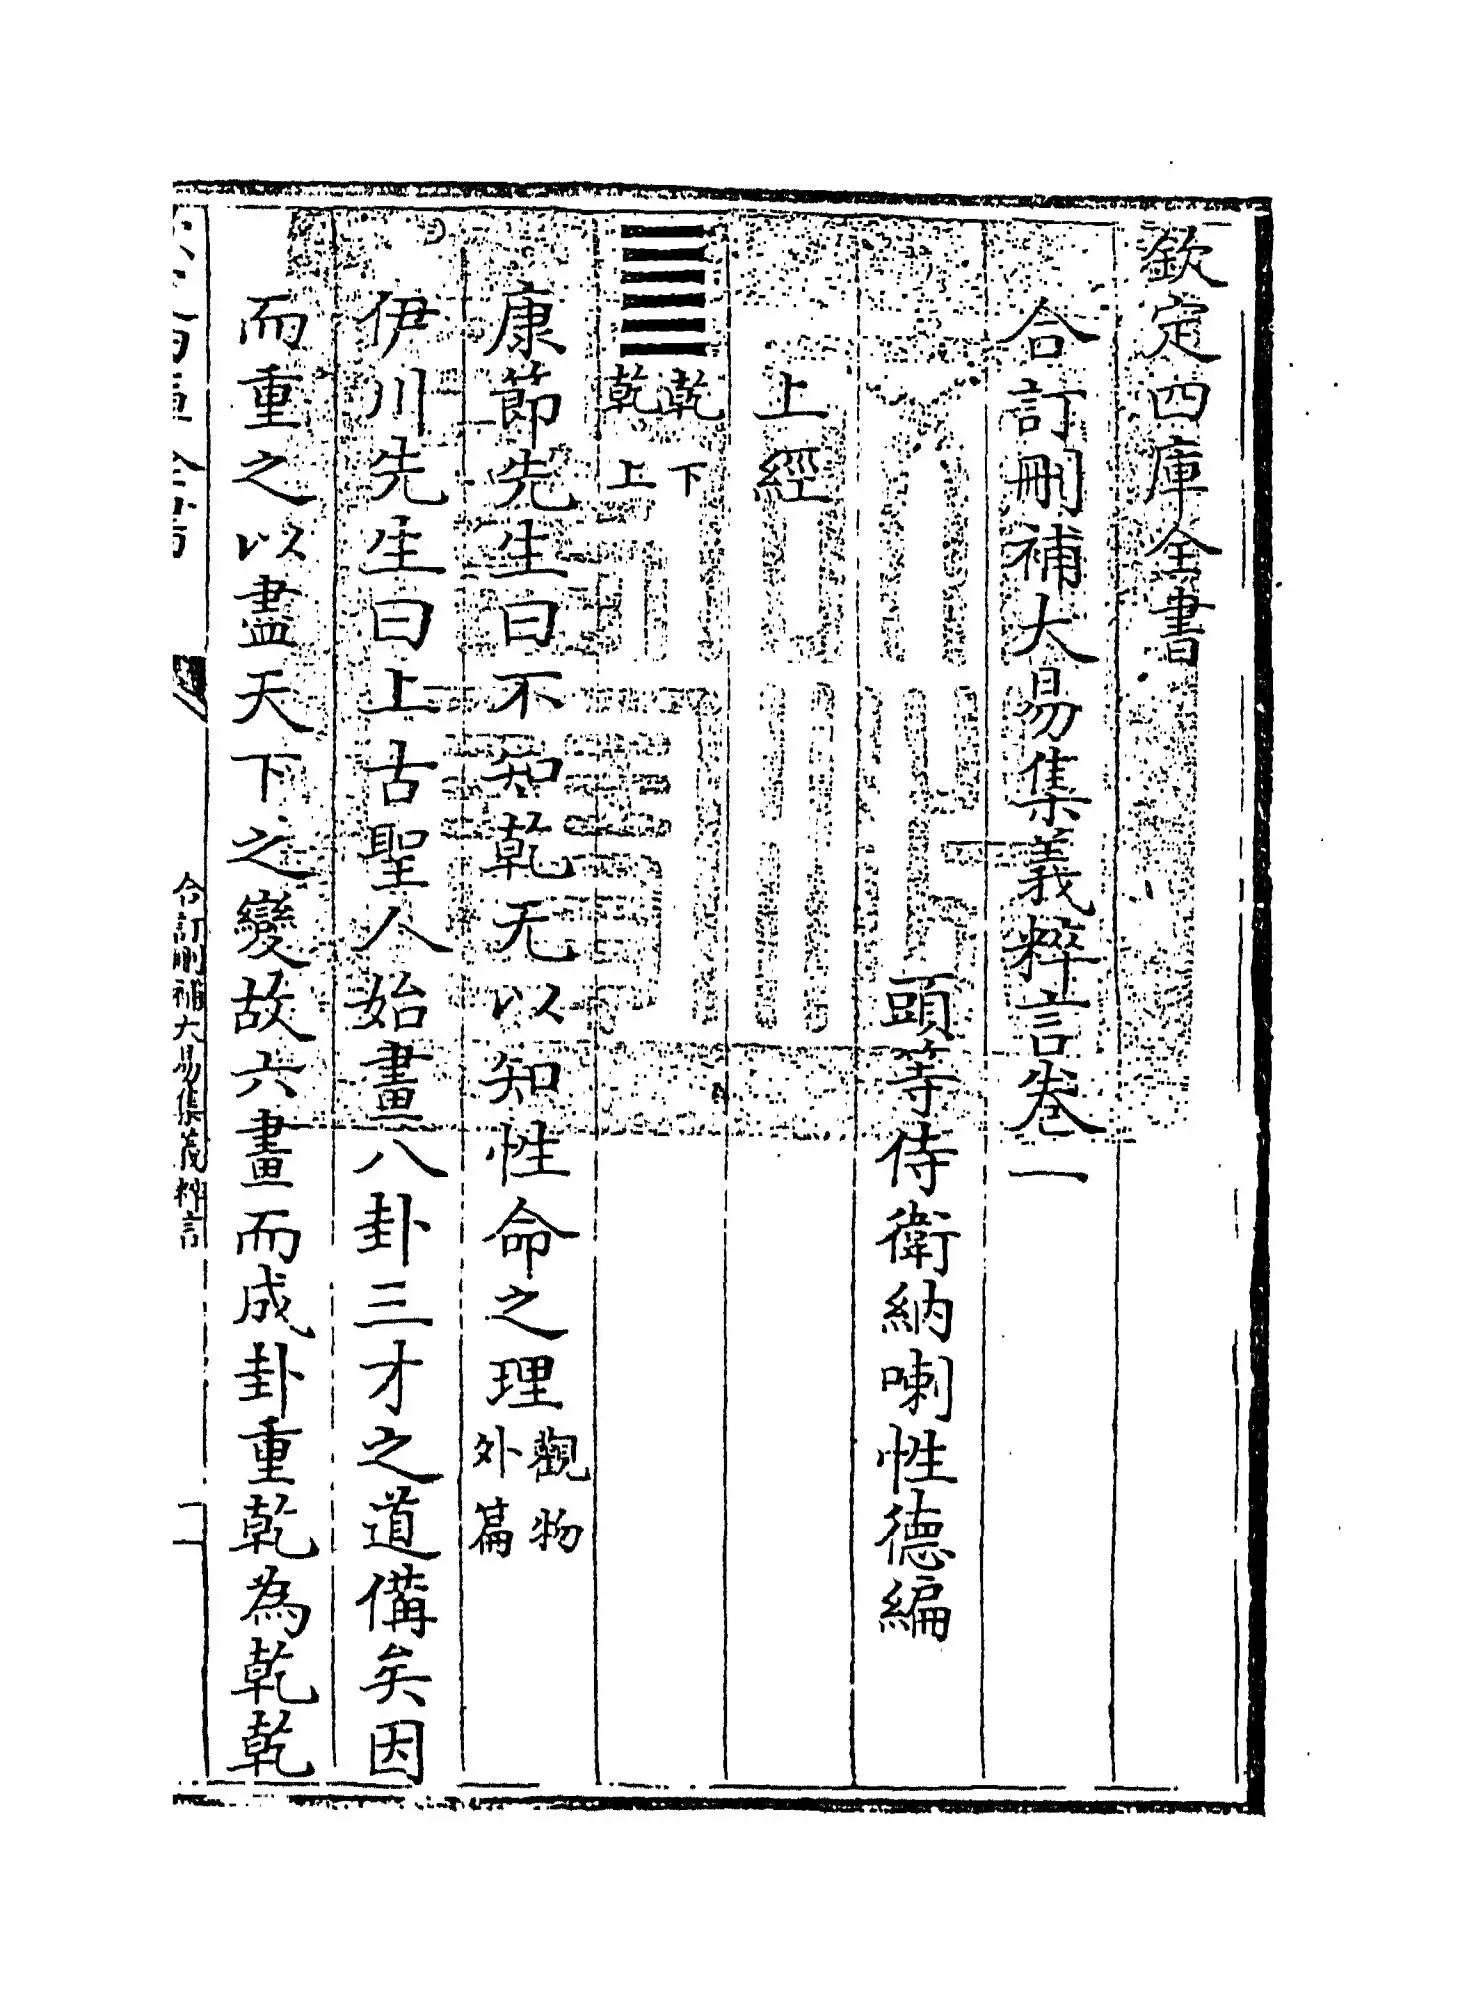 欽定四庫全書
合訂刪補大易集義粹言卷一
頭等侍衛納喇性德編
上經
乾下
乾上
康節先生曰不知乾无以知性命之理觀物
外篇
伊川先生曰上古聖人始畫八卦三才之道備矣因
而重之以盡天下之變故六畫而成卦重乾為乾乾
合訂刪補大易集義粹言